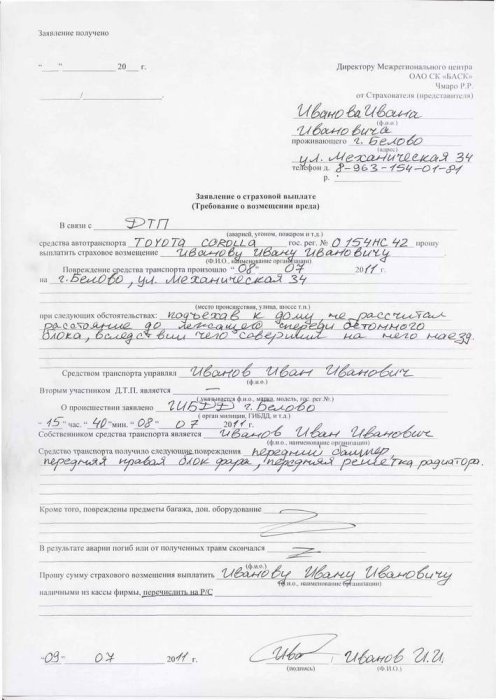 Заявление получено
"___" ________ 20__ г.
________/____________
Директору Межрегионального центра
ОАО СК «БАСК»
Чмаро Р.Р.
от Страхователя (представителя)
Иванова Ивана
(ф.и.о.)
Ивановича
проживающего г. Белово
(адрес)
ул. Механическая 34
телефон д. 8-963-154-01-81
р.
Заявление о страховой выплате
(Требование о возмещении вреда)
В связи с ДТП
(аварией, угоном, пожаром и т.д.)
средства автотранспорта TOYOTA COROLLA гос. рег. № О 154 НС 42 прошу
выплатить страховое возмещение Иванову Ивану Ивановичу
(Ф.И.О., наименование организации)
Повреждение средства транспорта произошло "08" 07 2011 г.
на г. Белово, ул. Механическая 34
(место происшествия, улица, шоссе т.п.)
при следующих обстоятельствах: подъехав к дому, не рассчитал
расстояние до лежащего спереди бетонного
блока, вследствии чего совершил на него наезд.
Средством транспорта управлял Иванов Иван Иванович
(ф.и.о.)
Вторым участником Д.Т.П. является —
(указывается ф.и.о., марка, модель, гос. рег №)
О происшествии заявлено ГИБДД г. Белово
(орган милиции, ГИБДД, и т.д.)
"15" час. "40" мин. "08" 07 2011 г.
Собственником средства транспорта является Иванов Иван Иванович
(ф.и.о., наименование организации)
Средство транспорта получило следующие повреждения передний бампер,
передняя правая блок фара, передняя решетка радиатора.
Кроме того, повреждены предметы багажа, доп. оборудование
В результате аварии погиб или от полученных травм скончался
(ф.и.о.)
Прошу сумму страхового возмещения выплатить Иванову Ивану Ивановичу
(ф.и.о., наименование организации)
наличными из кассы фирмы, перечислить на Р/С
"09" 07 2011 г. Ива / Иванов И.И.
(подпись) (Ф.И.О.)